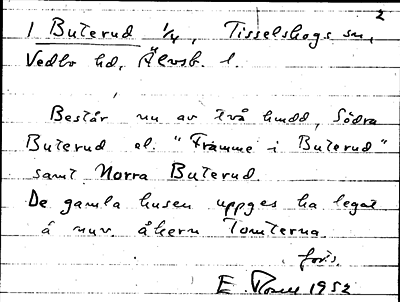 2
1 Buterud 1/4, Tisselskogs sn,
Vedbo hd, Älvsb. l.
Består nu av två hmdd, Södra
Buterud el. "Framme i Buterud"
samt Norra Buterud.
De gamla husen uppges ha legat
å nuv. åkern Tomterna.
fors.
E. 1952